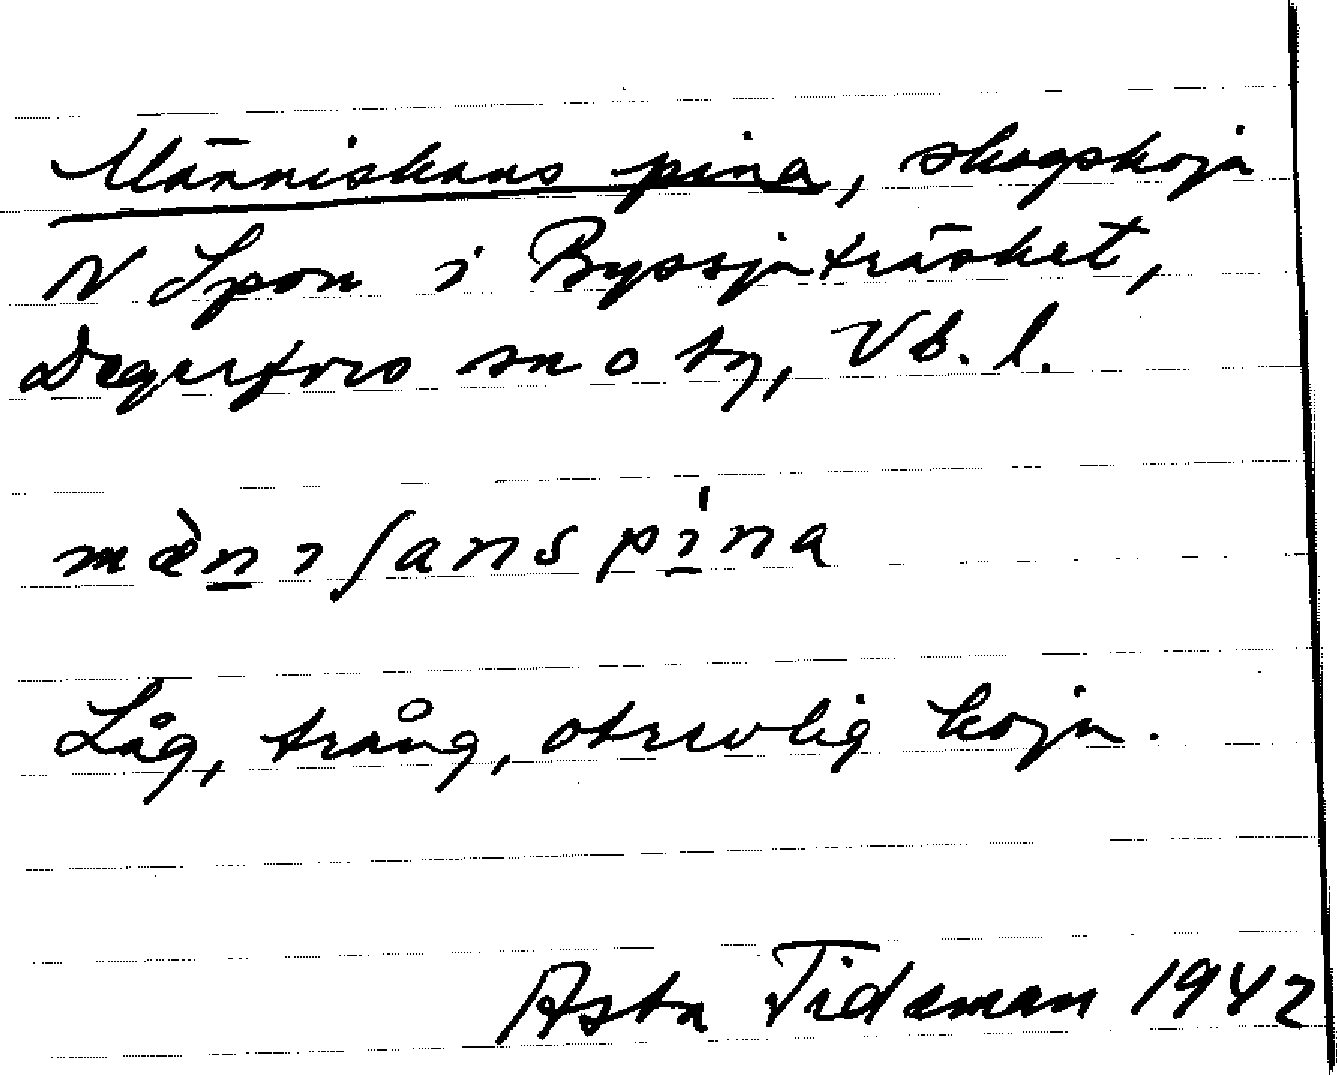 Människans pina, skogskoja
N Spon i Byssjaträsket,
Degerfors sn o tg, Vb. l.
mæ̀nıʃans pı̱́na
Låg, trång, otrevlig koja.
Asta Tideman 1942